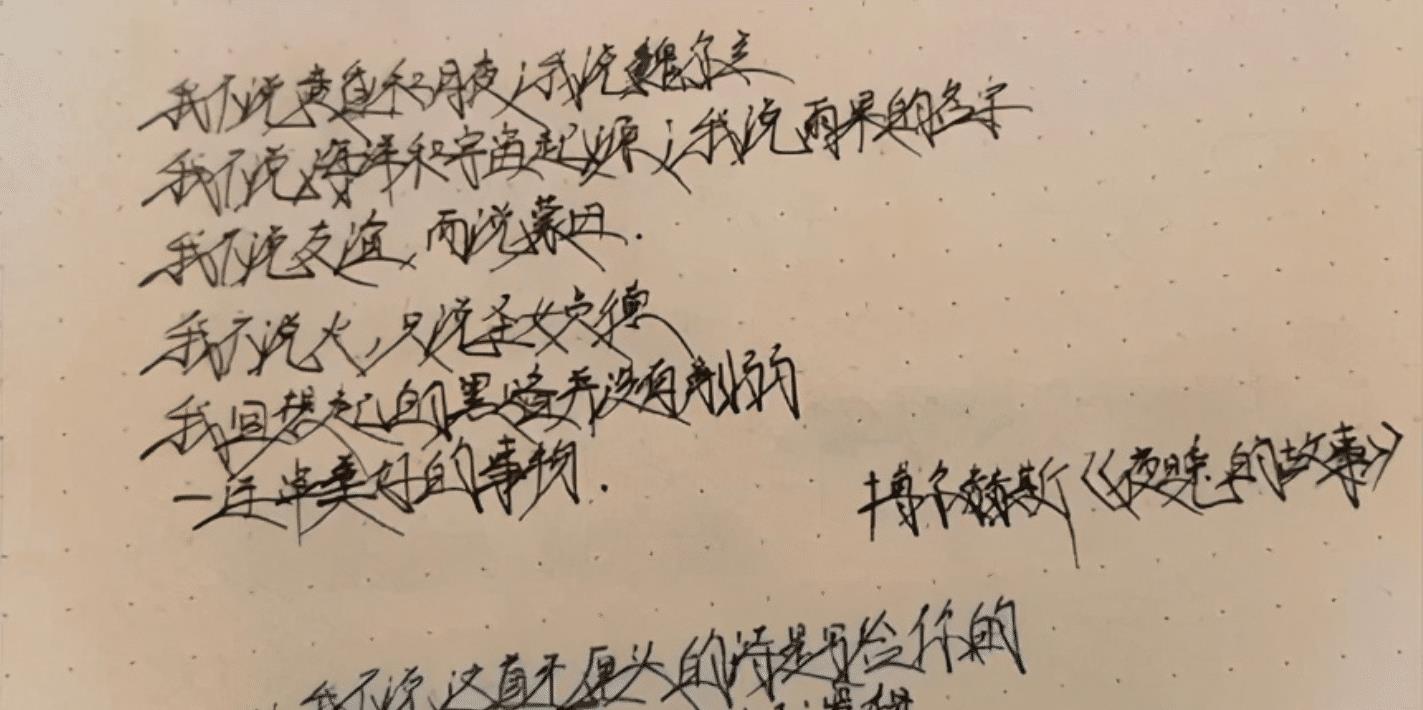 我不说黄昏和月夜;我说魏尔兰
我不说海洋和宇宙起源;我说雨果的名字
我不说友谊,而说蒙田.
我不说火,只说圣女贞德
我回想起的黑暗并没有削弱
一连串美好的事物.
博尔赫斯《夜晚的故事》
我不说这首无厘头的诗是写给你的